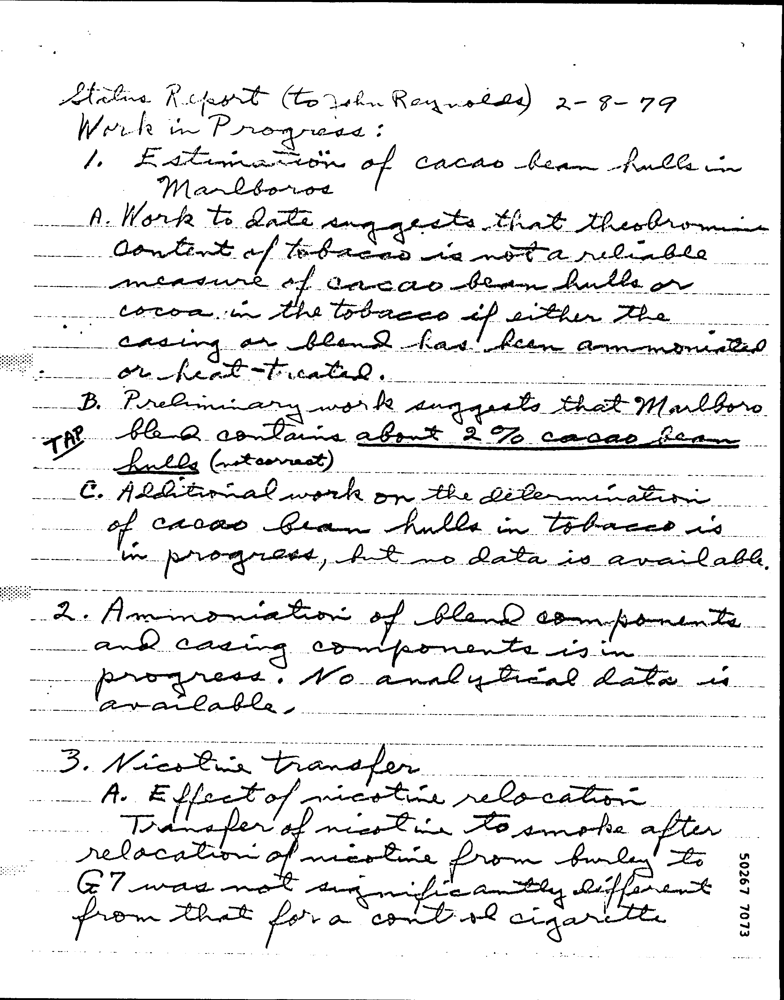 Status Report (to John Reynolds) 2-8-79
Work in Progress:
1. Estimation of cacao bean hulls in
Marlboros
A. Work to date suggests that theobromine
content of tobacco is not a reliable
measure of cacao bean hulls or
cocoa in the tobacco if either the
casing or blend has been ammoniated
or heat-treated.
B. Preliminary work suggests that Marlboro
TAP blend contains about 2% cacao bean
hulls (not correct)
C. Additional work on the determination
of cacao bean hulls in tobacco is
in progress, but no data is available.
2. Ammoniation of blend components
and casing components is in
progress. No analytical data is
available.
3. Nicotine transfer
A. Effect of nicotine relocation
Transfer of nicotine to smoke after
relocation of nicotine from burley to
G7 was not significantly different
from that for a control cigarette
50267 7073